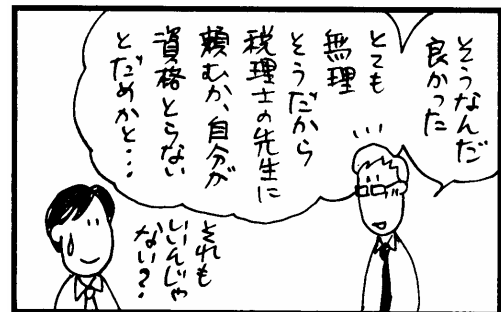 そうなんだ
良かった
とても
無理
そうだから
税理士の先生に
頼むか、自分が
資格とらない
とだめかと・・・
それも
いいんじゃ
ない?